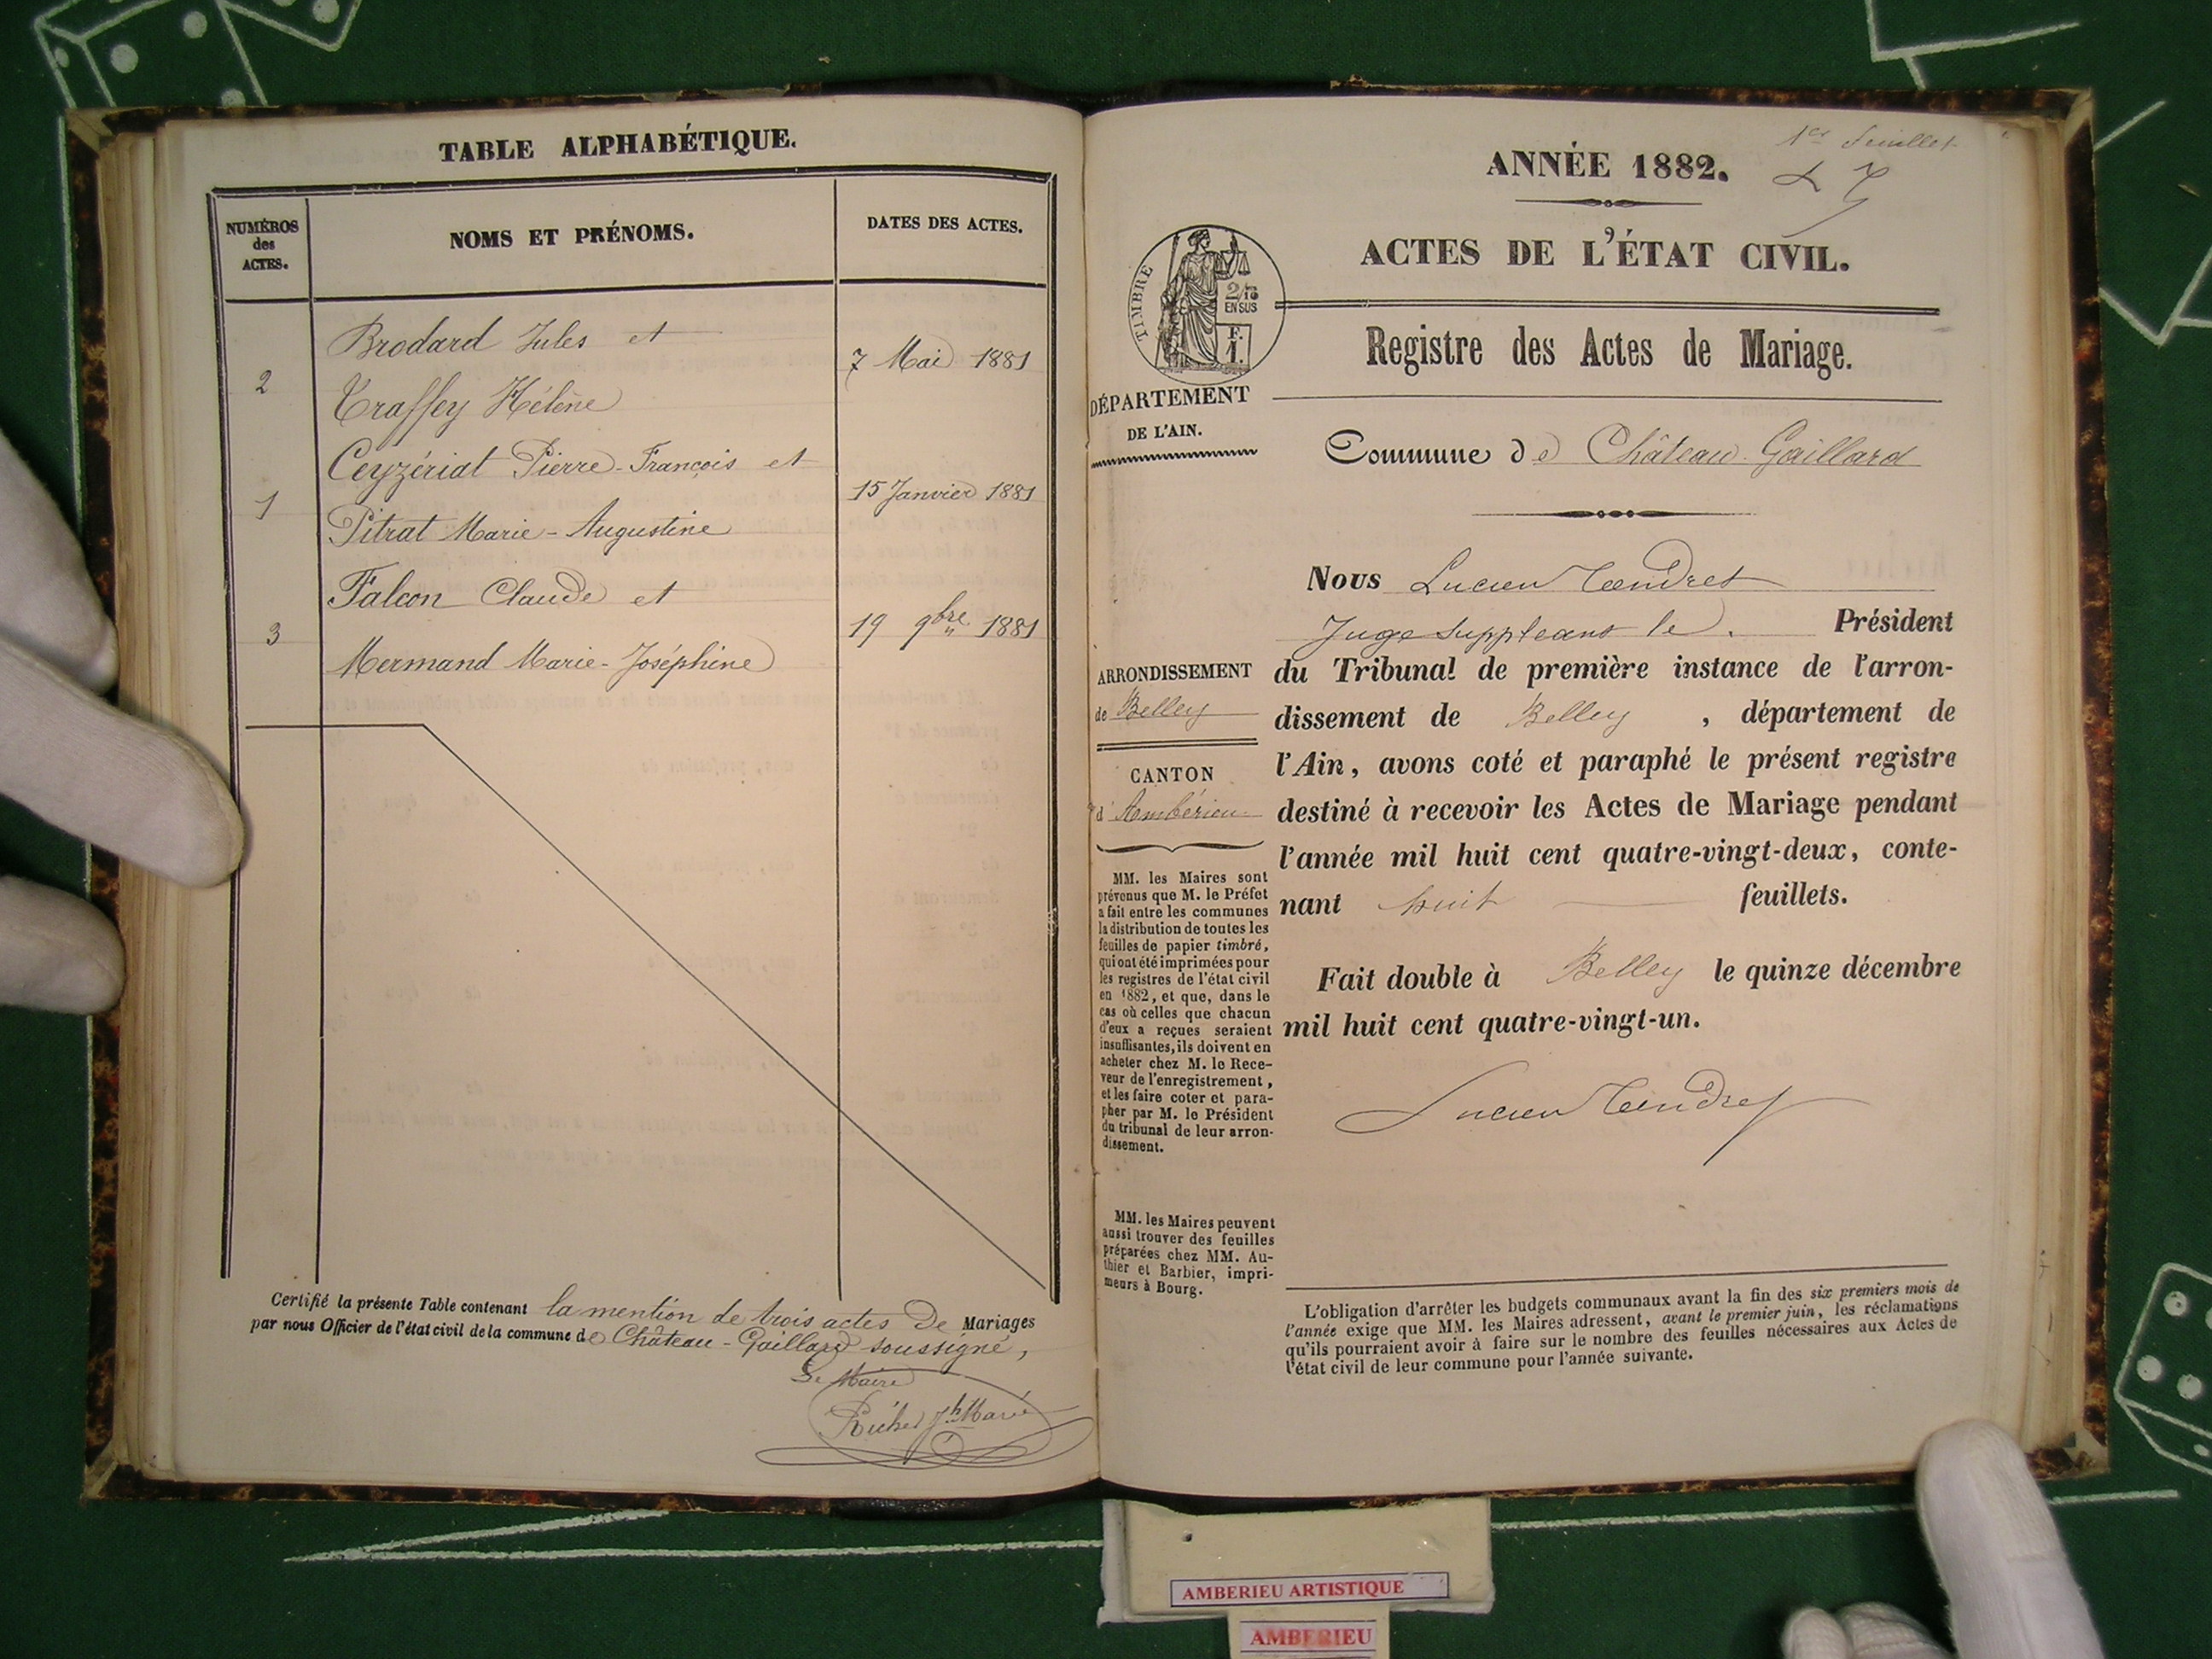 TABLE ALPHABÉTIQUE.
NUMÉROS
des
ACTES.
NOMS ET PRÉNOMS.
DATES DES ACTES.
Brodard Jules et
2
7 Mai 1881
Traffey Hélène
Ceyzériat Pierre-François et
1
15 Janvier 1881
Pitrat Marie-Augustine
Falcon Claude et
3
19 9bre 1881
Mermand Marie-Joséphine
Certifié la présente Table contenant la mention de trois actes de Mariages
par nous Officier de l'état civil de la commune de Château-Gaillard soussigné,
Le Maire
1er feuillet
ANNÉE 1882.
ACTES DE L'ÉTAT CIVIL.
TIMBRE
2/10
EN SUS
F.
1.
Registre des Actes de Mariage.
DÉPARTEMENT
DE L'AIN.
Commune de Château-Gaillard
Nous Lucien Tendret
Juge suppléant le Président
du Tribunal de première instance de l'arron-
dissement de Belley, département de
l'Ain, avons coté et paraphé le présent registre
destiné à recevoir les Actes de Mariage pendant
l'année mil huit cent quatre-vingt-deux, conte-
nant huit feuillets.
Fait double à Belley le quinze décembre
mil huit cent quatre-vingt-un.
Lucien Tendret
ARRONDISSEMENT
de Belley
CANTON
d'Ambérieu
MM. les Maires sont
prévenus que M. le Préfet
a fait entre les communes
la distribution de toutes les
feuilles de papier timbré,
qui ont été imprimées pour
les registres de l'état civil
en 1882, et que, dans le
cas où celles que chacun
d'eux a reçues seraient
insuffisantes, ils doivent en
acheter chez M. le Rece-
veur de l'enregistrement,
et les faire coter et para-
pher par M. le Président
du tribunal de leur arron-
dissement.
MM. les Maires peuvent
aussi trouver des feuilles
préparées chez MM. Au-
thier et Barbier, impri-
meurs à Bourg.
L'obligation d'arrêter les budgets communaux avant la fin des six premiers mois de
l'année exige que MM. les Maires adressent, avant le premier juin, les réclamations
qu'ils pourraient avoir à faire sur le nombre des feuilles nécessaires aux Actes de
l'état civil de leur commune pour l'année suivante.
AMBERIEU ARTISTIQUE
AMBERIEU